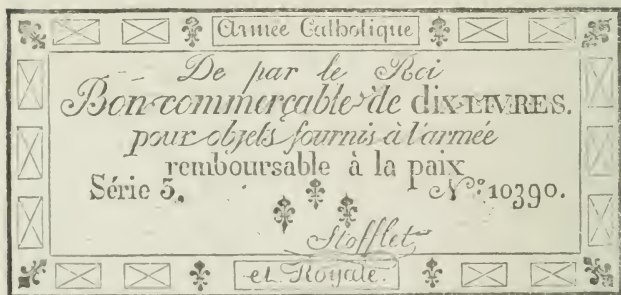 Armée Catholique
De par le Roi
Bon commerçable de dix LIVRES.
pour objets fournis à l'armée
remboursable à la paix
Série 3. N.º 10390.
Stofflet
et Royale.